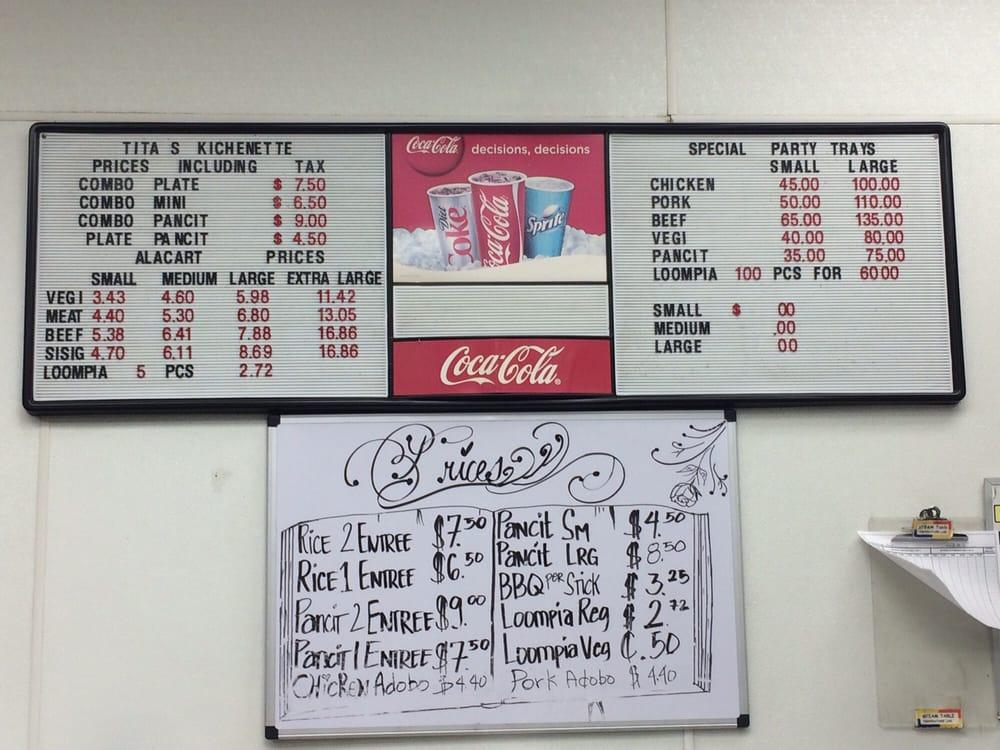 TITA S KICHENETTE
PRICES INCLUDING TAX
COMBO PLATE $ 7.50
COMBO MINI $ 6.50
COMBO PANCIT $ 9.00
PLATE PANCIT $ 4.50
ALACART PRICES
SMALL MEDIUM LARGE EXTRA LARGE
VEGI 3.43 4.60 5.98 11.42
MEAT 4.40 5.30 6.80 13.05
BEEF 5.38 6.41 7.88 16.86
SISIG 4.70 6.11 8.69 16.86
LOOMPIA 5 PCS 2.72
Coca-Cola decisions, decisions
Diet Coke
Coca-Cola
Sprite
Coca-Cola®
SPECIAL PARTY TRAYS
SMALL LARGE
CHICKEN 45.00 100.00
PORK 50.00 110.00
BEEF 65.00 135.00
VEGI 40.00 80,00
PANCIT 35.00 75.00
LOOMPIA 100 PCS FOR 6000
SMALL $ 00
MEDIUM .00
LARGE 00
Prices
Rice 2 Entree $7.50
Rice 1 Entree $6.50
Pancit 2 Entree $9.00
Pancit 1 Entree $7.50
Chicken Adobo $4.40
Pancit Sm $4.50
Pancit Lrg $8.50
BBQ per Stick $3.25
Loompia Reg $2.72
Loompia Veg ¢.50
Pork Adobo $4.40
STEAM TABLE
STEAM TABLE